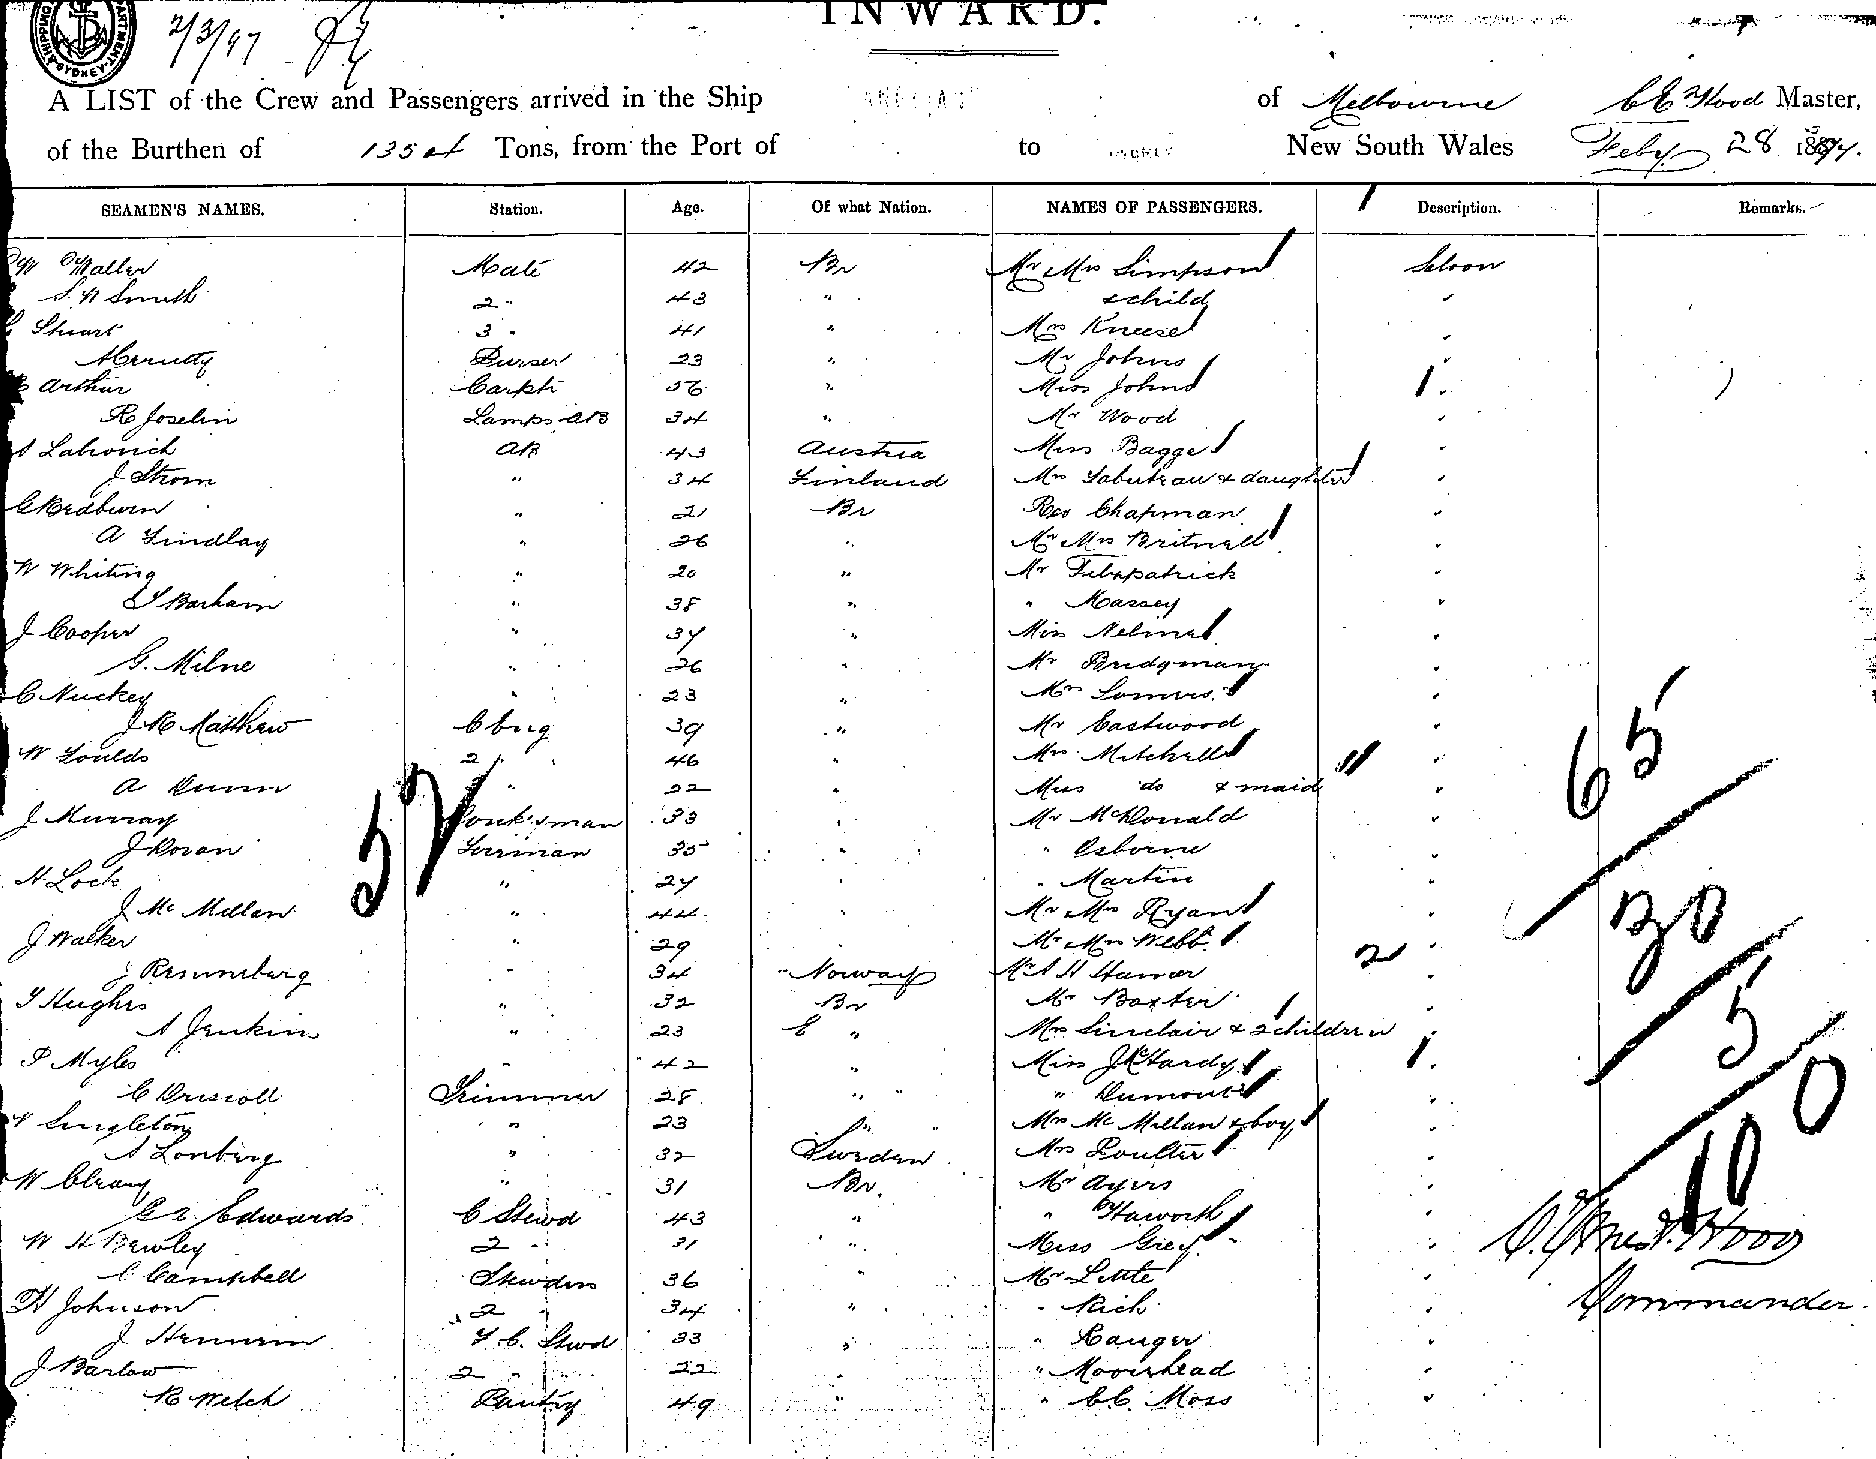 INWARD.
2/3/97
A LIST of the Crew and Passengers arrived in the Ship of Melbourne C E Wood Master,
of the Burthen of Tons, from the Port of to New South Wales Feby 28 1897.
SEAMEN'S NAMES. Station. Age. Of what Nation. NAMES OF PASSENGERS. Description. Remarks.
Waller Mate 42 Br Mr Mrs Simpson Saloon
S. W Smith 2 " 43 " & child "
Stuart 3 " 41 " Mrs Kneese "
Purser 23 " Mr Johns "
Arthur Carptr 56 " Miss Johns "
R Joselin Lamps AB 34 " Mr Wood "
Lahovich AB 43 Austria Miss Bagge "
J Strom " 34 Finland Mrs & daughter "
C Bedburn " 21 Br Rev Chapman "
A Lindlay " 26 " Mr Mrs Britnall "
W Whiting " 20 " Mr Fitzpatrick "
Barham " 38 " " Massey "
J Cooper " 37 " Miss "
G. Milne " 26 " Mr Bridgman "
C Nuckey " 23 " Mrs Somers "
J R Matthew C Eng 39 " Mr Eastwood "
W Foulds 2 " 46 " Mrs Mitchell "
A Dunn " 22 " Miss do & maid "
J Murray Donk'yman 33 " Mr McDonald "
J Doran Fireman 35 " " Osborne "
H Lock " 27 " " Martin "
J Mc Mellan " 44 " Mr Mrs Ryan "
J Walker " 29 " Mr Mrs Webb 2 "
J " 34 Norway Mr A H Hamer "
T Hughes " 32 Br Mr Baxter "
A Jenkin " 23 " Mrs Sinclair & 2 children "
P Myles " 42 " Miss Hardy "
C Driscoll Trimmer 28 " " Dumont "
Singleton " 23 " Mrs Mc Millan & boy "
A Lonberg " 32 Sweden Mrs Poulter "
W Cleary " 31 Br. Mr Ayers "
Edwards C Stewd 43 " " Haworth "
W H Bewley 2 " 31 " Miss Grey "
C Campbell Stewdss 36 " Mr Little "
H Johnson 2 " 34 " " Rich "
J F. C. Stwd 33 " " Ranger "
J Barlow 2 " 22 " " Moorshead "
R Welch Pantry 49 " " C.C. Moss "
57
65
30
5
100
C. Ernest Wood
Commander.